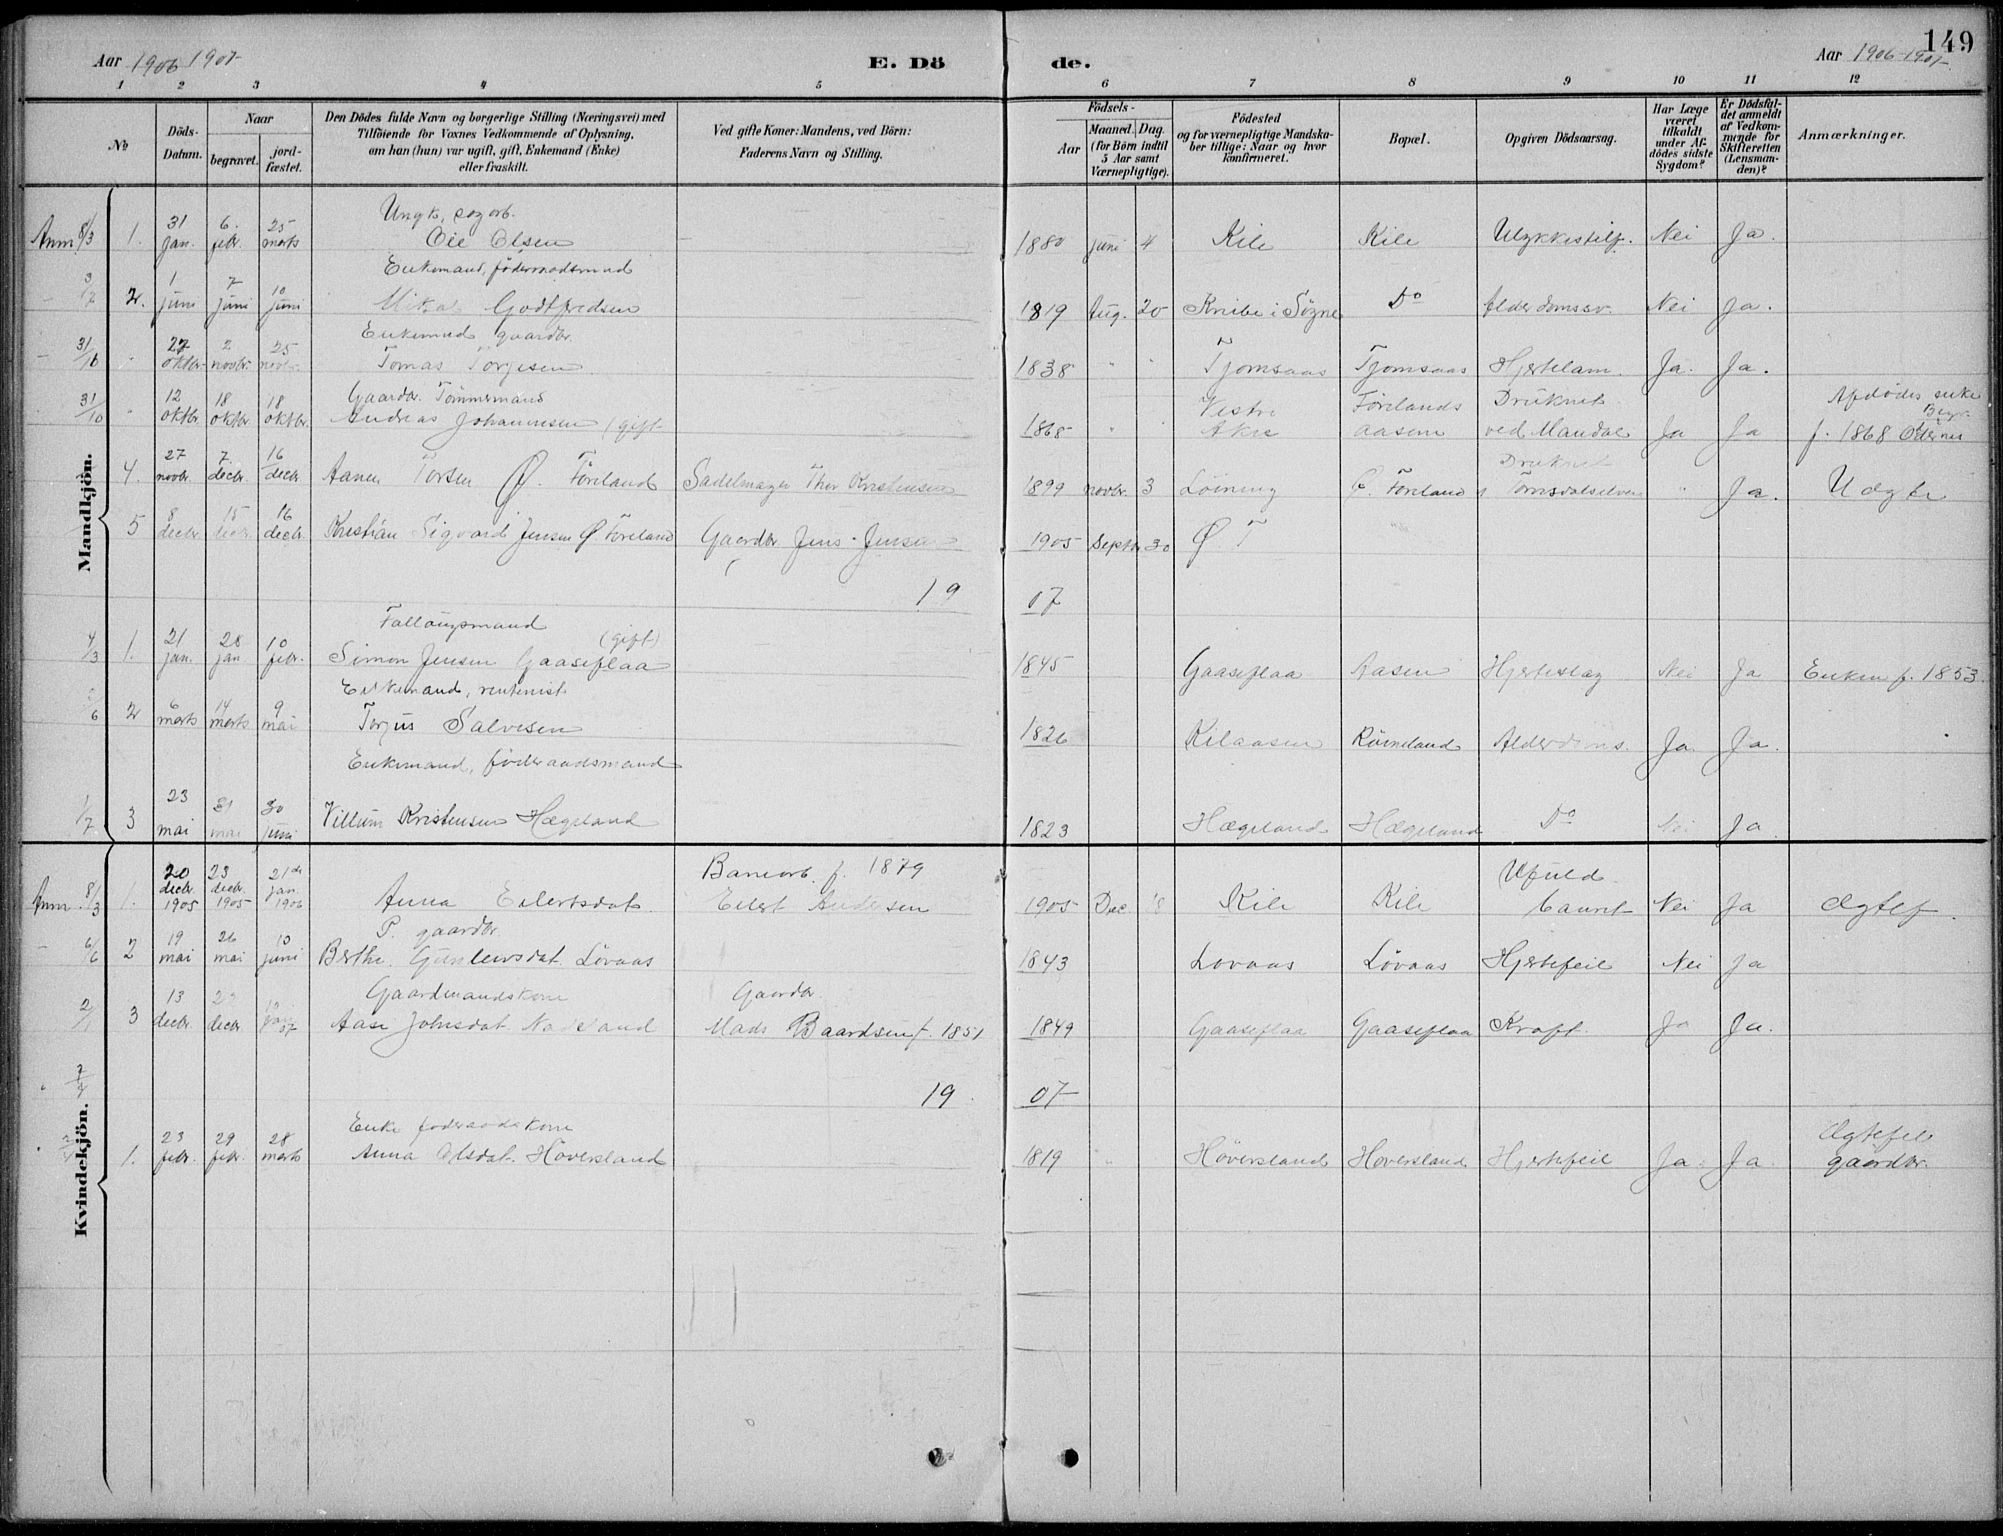 149
Aar 1906 1907
E. Dö
de.
Aar 1906-1907
1 2 3 4 5 6 7 8 9 10 11 12
No
Döds-Datum.
Naar
begravet.
jord-fæstet.
Den Dödes fulde Navn og borgerlige Stilling (Næringsvei) med
Tilföiende for Voxnes Vedkommende af Oplysning,
om han (hun) var ugift, gift, Enkemand (Enke)
eller fraskilt.
Ved gifte Koner: Mandens, ved Börn:
Faderens Navn og Stilling.
Födsels-
Aar
Maaned. Dag.
(for Börn indtil
5 Aar samt
Værnepligtige).
Födested
og for værnepligtige Mandska-
ber tillige: Naar og hvor
konfirmeret.
Bopæl.
Opgiven Dödsaarsag.
Har Læge
været
tilkaldt
under Af-
dödes sidste
Sygdom?
Er Dödsfal-
det anmeldt
af Vedkom-
mende for
Skifteretten
(Lensman-
den)?
Anmærkninger.
Mandkjön.
Ungk,
Anm. 8/3 1. 31 jan. 6. febr. 25 marts Ole Olsen 1880 juni 4 Kile Kile Ulykkestilf. Nei Ja.
Enkemand, föderaadsmand
3/7 2. 1 juni 7 juni 10 juni Mikal Godtfredsen 1819 Aug. 20 Knibe i Søgne Do Alderdomssv. Nei Ja.
Enkemand gaardbr.
31/10 " 27 oktbr. 2 novbr. 25 novbr. Tomas Torjesen 1838 " " Tjomsaas Tjomsaas Hjertelam. Ja. Ja.
Gaardbr. Tømmermand Vestre Förelands Druknet Afdödes enke
31/10 " 12 oktbr. 18 oktbr 18 oktbr. Andreas Johannesen (gift 1868 " " aasen ved Mandal Ja Ja f. 1868
Druknet
4. 27 novbr. 7. decbr. 16 decbr Aanen Torsen Ø. Föreland Sadelmager Thor Kristensen 1899 novbr. 3 Løining Ø. Föreland " Ja. Uægte
5 8 decbr 15 decbr. 16 decbr. Kristian Sigvard Jensen Ø. Föreland Gaardbr Jens Jensen 1905 Septbr 30 Ø. F
19 07
(gift)
4/3 1. 21 jan. 28 jan 10 febr. Simon Jensen Gaaseflaa 1845 Gaaseflaa Aasen Hjerteslag Nei Ja Enken f. 1853
Enkemand, rentenist
6 2 6 marts 14 marts 9 mai Torjus Salvesen 1826 Kilaasen Alderdoms. Ja. Ja.
Enkemand, föderaadsmand
1/7 3 23 mai 31 mai 30 juni Villum Kristensen Hægeland 1823 Hægeland Hægeland Do Nei Ja.
Kvindekjön.
Banearb. f. 1879 Ufuld
Anm. 8/3 1. 20 decbr. 1905 23 decbr. 1905 21de jan. 1906 Anna Eilertsdat. Eilert Andersen 1905 Dec. 18 Kile Kile baaret Nei Ja Ægtef.
P. gaardbr.
6/6 2 19 mai 26 mai 10 juni Berthe Gunleivsdat. Løvaas 1843 Lovaas Løvaas Hjertefeil Nei Ja
Gaardmandskone Gaardbr.
2/1 3 13 decbr. decbr 07 Aase Johnsdat. Mads Baardsen f. 1851 1849 Gaaseflaa Gaaseflaa Kræft. Ja Ja.
19 07
Enke föderaadskone Ægtefel
1. 23 febr. 29 febr. 28 marts Anna Olsdat. Höversland 1819 " Höversland Höversland Hjertefeil Ja. Ja. gaardbr.